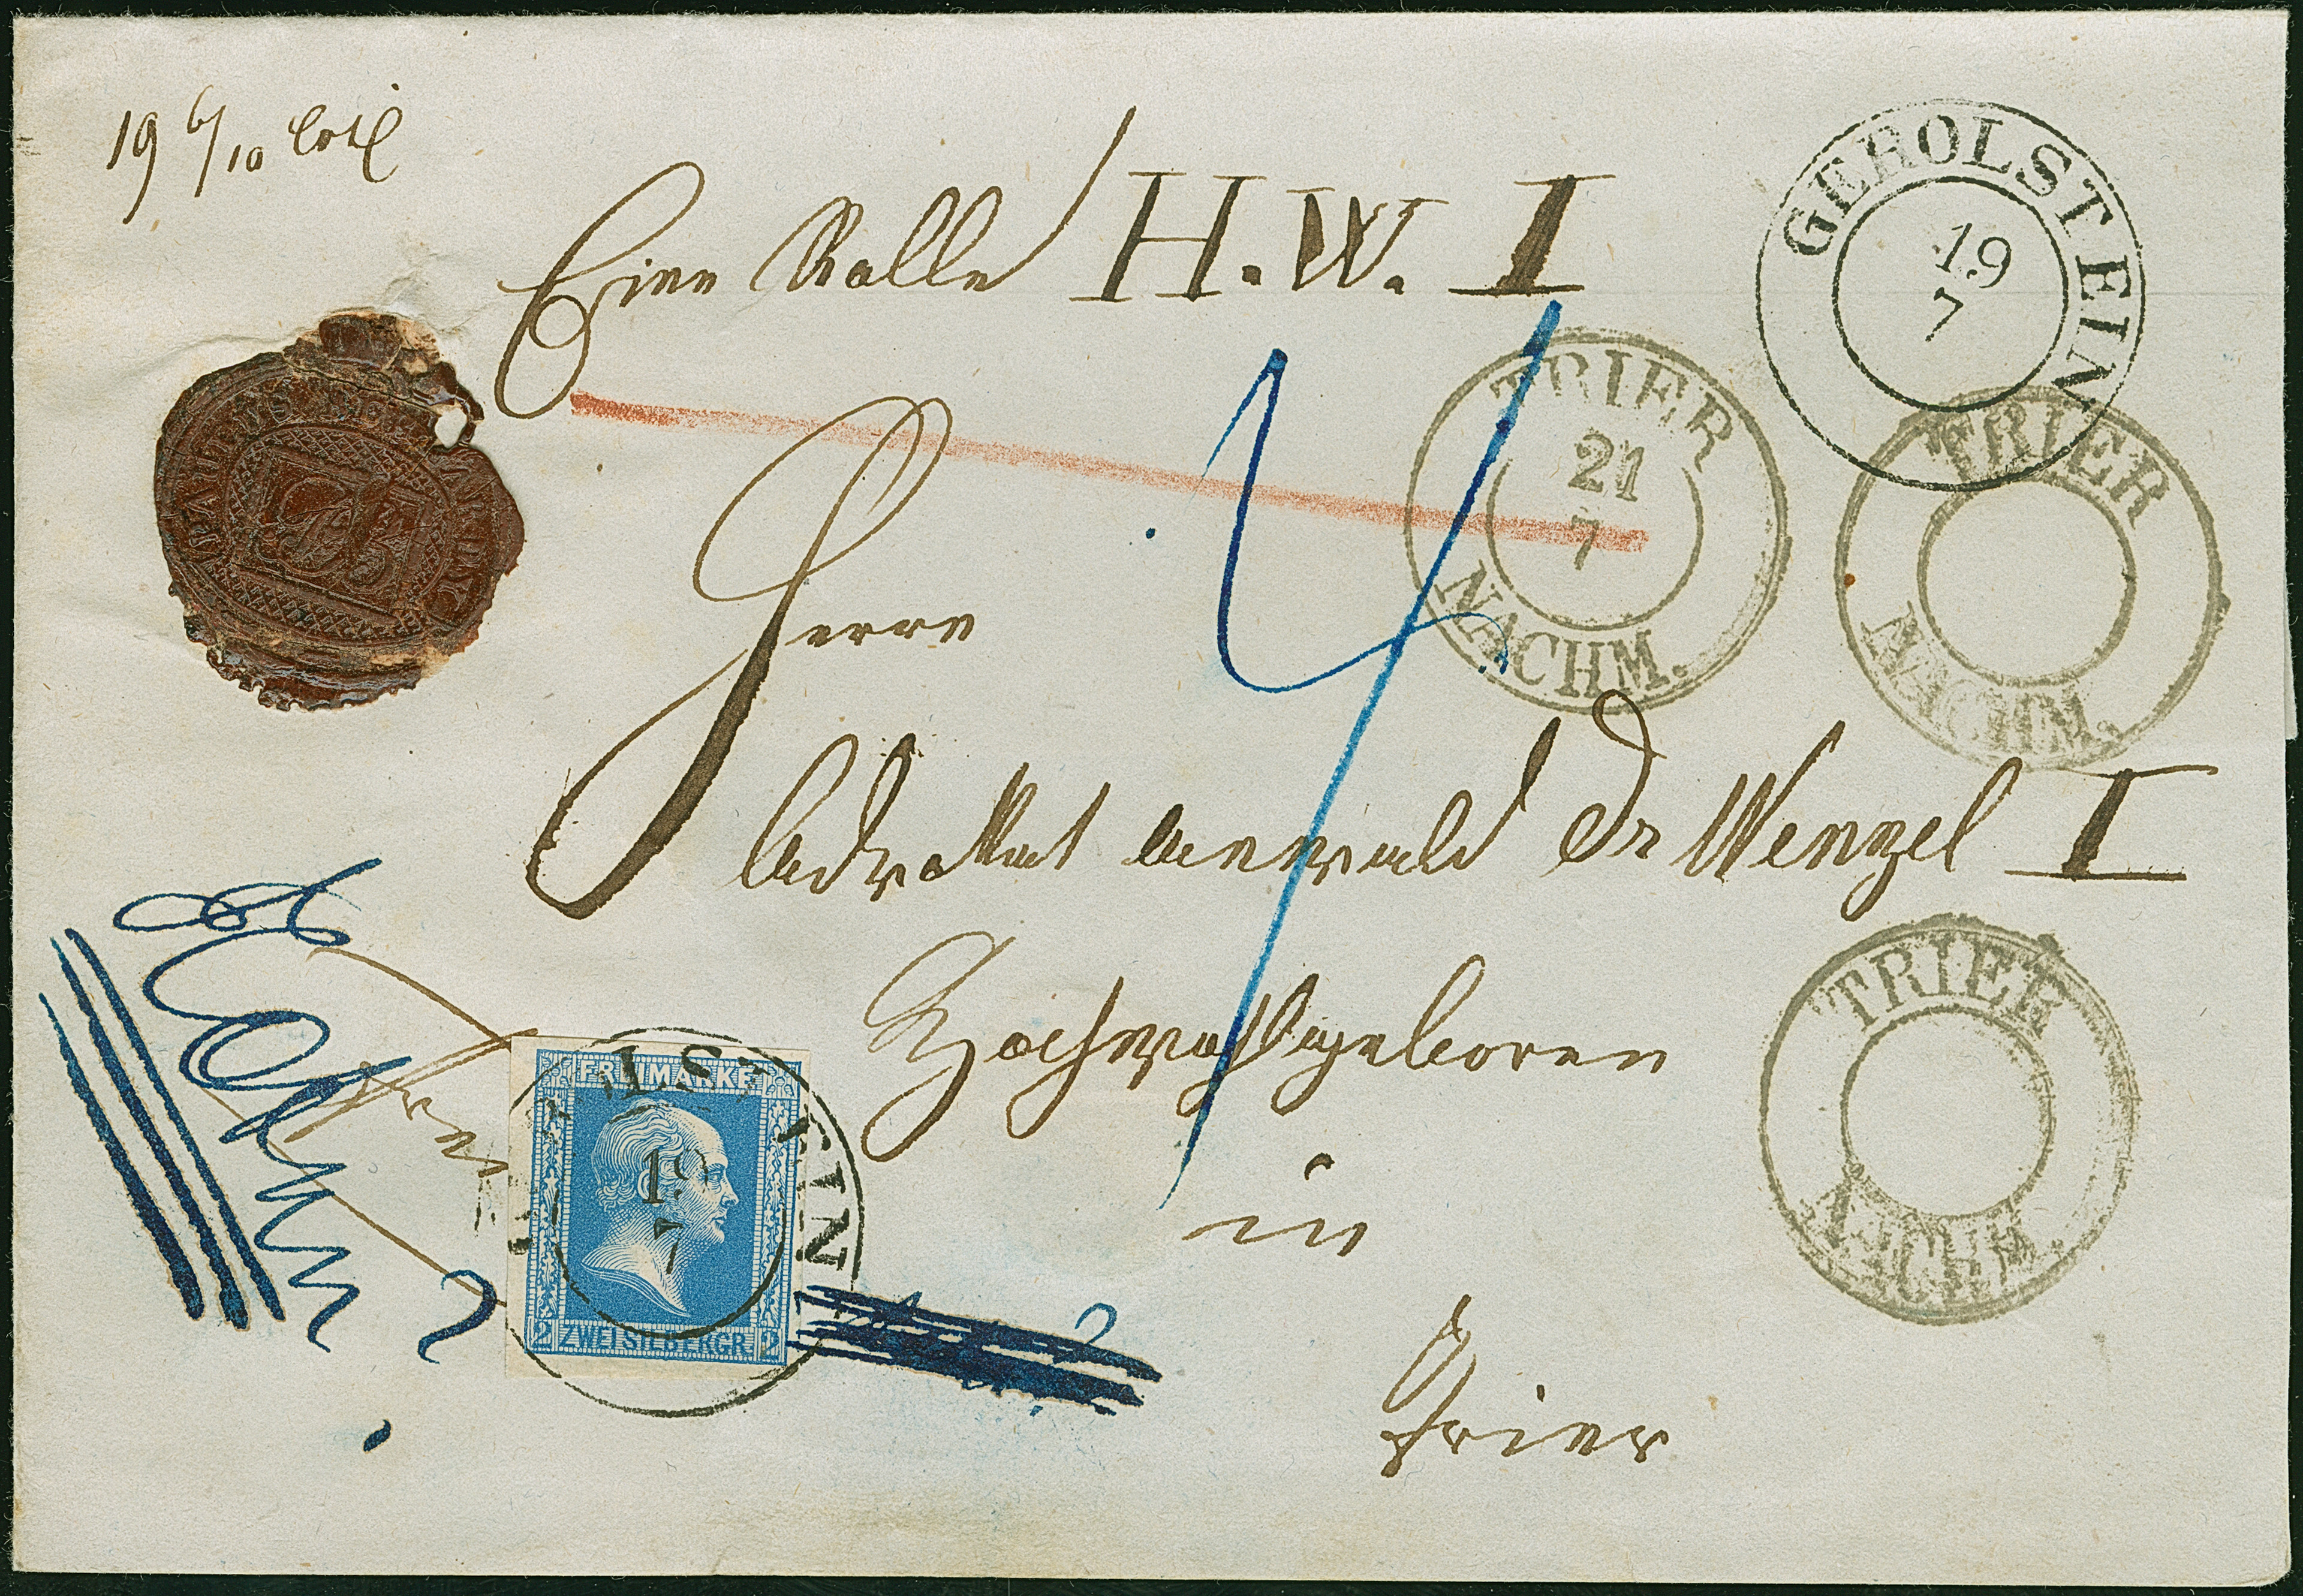 19 6/10 Loth
Eine Rolle H. W. I
GEROLSTEIN
19
7
TRIER
21
7
NACHM.
TRIER
NACHM.
Herrn
Advokat Anwald Dr Wenzel I
Hochwohlgeboren
TRIER
NACHM.
in
Trier
FREIMARKE
2 ZWEI SILBERGR. 2
19
7